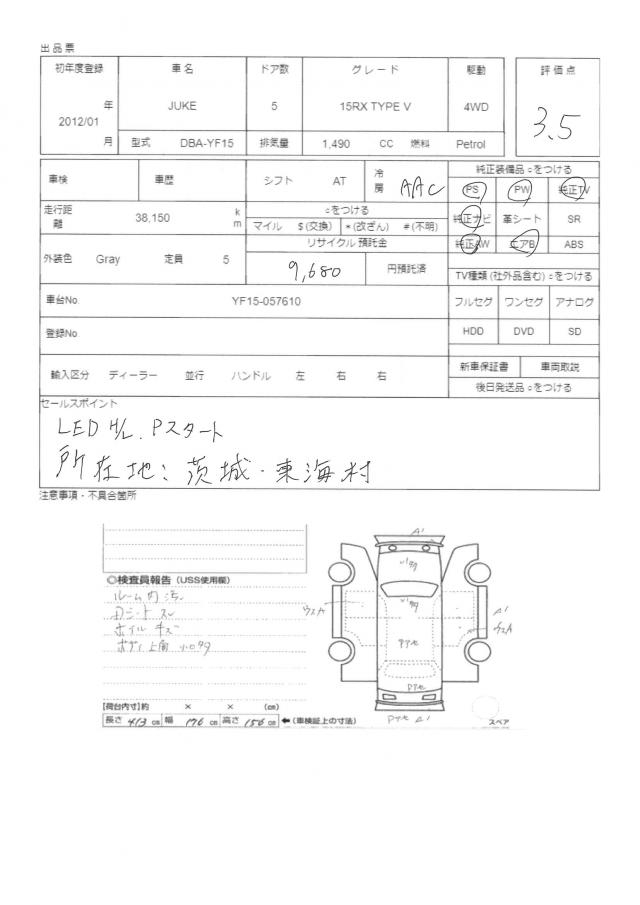 出品票
初年度登録 車名 ドア数 グレード 駆動 評価点
2012/01 年 月 JUKE 5 15RX TYPE V 4WD 3.5
型式 DBA-YF15 排気量 1,490 CC 燃料 Petrol
車検 車歴 シフト AT 冷房 AAC
純正装備品○をつける
PS PW 純正TV
走行距離 38,150 km
○をつける
マイル $(交換) *(改ざん) #(不明)
純正ナビ 革シート SR
リサイクル預託金
9,680 円預託済
純正AW エアB ABS
外装色 Gray 定員 5
TV種類(社外品含む)○をつける
車台No YF15-057610
フルセグ ワンセグ アナログ
登録No
HDD DVD SD
輸入区分 ディーラー 並行 ハンドル 左 右 右
新車保証書 車両取説
後日発送品○をつける
セールスポイント
LED H/L. Pスタート
所在地:茨城・東海村
注意事項・不具合箇所
◎検査員報告(USS使用欄)
ルーム内汚
ホイルキズ
[荷台内寸]約 × × (cm)
長さ 413 cm 幅 176 cm 高さ 156 cm ←(車検証上の寸法)
A1
A1
A1
スペア